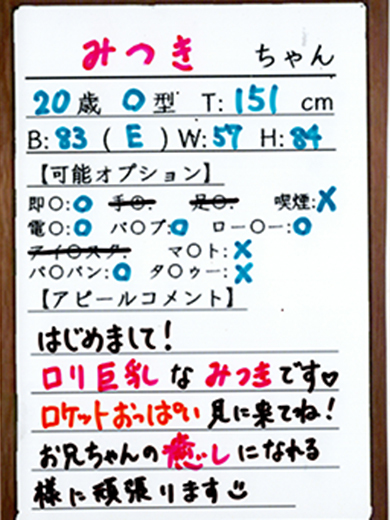 みつき ちゃん
20歳 O型 T:151 cm
B:83 (E) W:57 H:84
【可能オプション】
即〇:○ 手〇: 足〇: 喫煙:X
電〇:○ バ〇ブ:○ ロー〇ー:○
アイ〇スク: マ〇ト:X
パ〇パン:○ タ〇ゥー:X
【アピールコメント】
はじめまして!
ロリ巨乳なみつきです♡
ロケットおっぱい見に来てね!
お兄ちゃんの癒しになれる
様に頑張ります